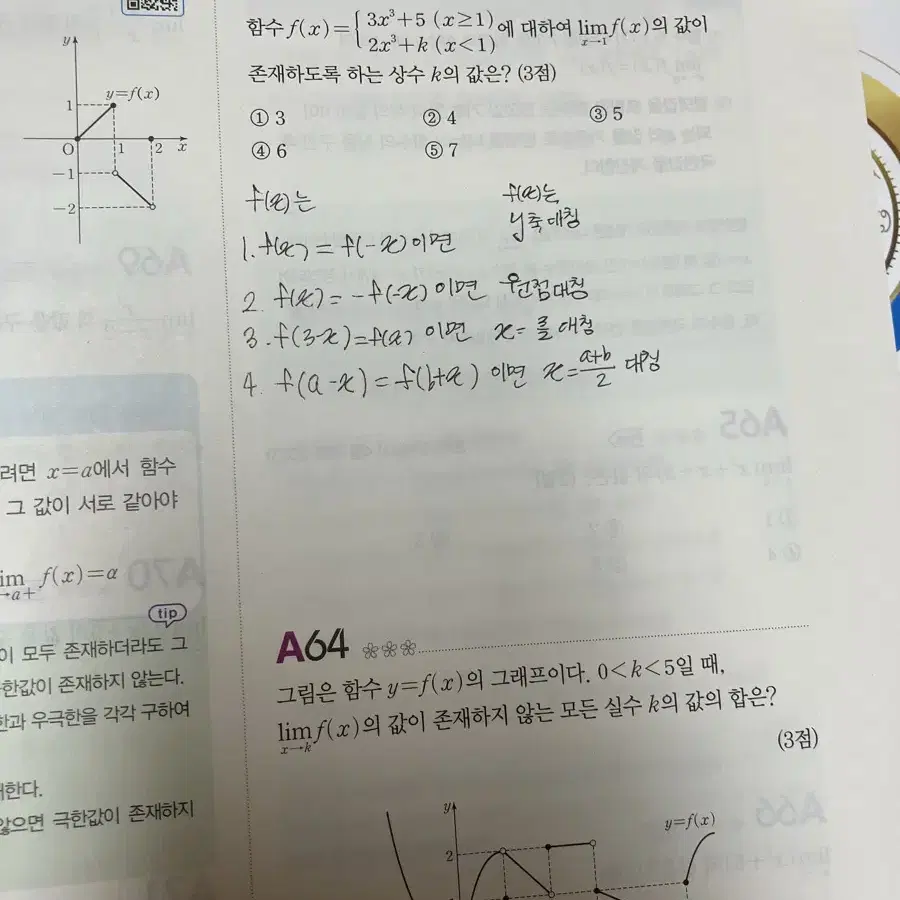 y
y=f(x)
1
O
1
2
x
-1
-2
려면 x=a에서 함수
그 값이 서로 같아야
im f(x)=α
→a+
tip
이 모두 존재하더라도 그
한값이 존재하지 않는다.
한과 우극한을 각각 구하여
재한다.
않으면 극한값이 존재하지
함수 f(x)={ 3x³+5 (x≥1) 2x³+k (x<1) 에 대하여 lim x→1 f(x)의 값이
존재하도록 하는 상수 k의 값은? (3점)
① 3 ② 4 ③ 5
④ 6 ⑤ 7
f(x)는 f(x)는
y축 대칭
1. f(x) = f(-x) 이면
2. f(x) = -f(-x) 이면 원점대칭
3. f(3-x)=f(x) 이면 x= 를 대칭
4. f(a-x) = f(b+x) 이면 x = a+b/2 대칭
A64
그림은 함수 y=f(x)의 그래프이다. 0<k<5일 때,
lim x→k f(x)의 값이 존재하지 않는 모든 실수 k의 값의 합은?
(3점)
y
y=f(x)
2
A69
A65
A70
A66